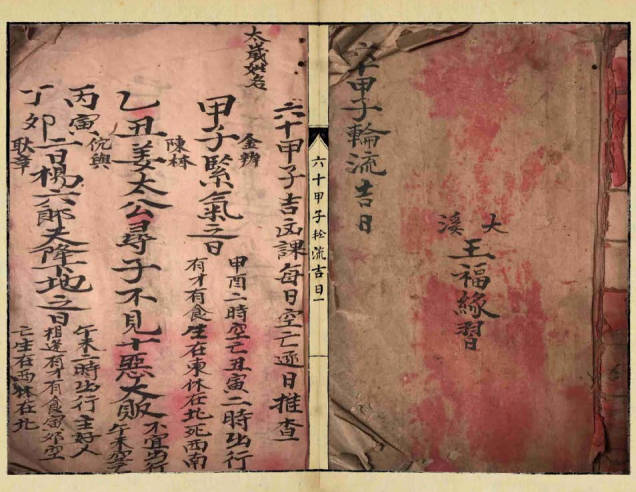 六十甲子輪流吉日
大溪
王福緣習
六十甲子輪流吉日一
太歲姓名
六十甲子吉凶課每日空亡逐日推查
金辨
甲子緊氣之日
申酉二時空亡丑寅二時出行
有才有食生在東休在北死西南
陳林
乙丑姜太公尋子不見十惡大敗
不宜出行
午未空亡
沈興
丙寅
耿章
丁卯二日楊六郎夫降地之日
午未二時出行主好人
相逢有才有食寅卯空
亡生在西休在北